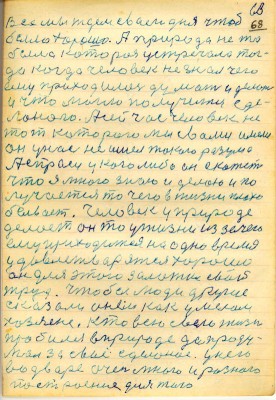 68
68
Все мы ждем своего дня чтоб
было хорошо. А природа не то
была которая устречала тог-
да когда человек не знал чего
ему приходилось думать и делать
и что можно получить сде-
ланого. А сичас человек не
тот которого мы с вами имели
он у нас не имел такого разума
А спроси у кого либо он скажет
что я много знаю и делаю и по
лучается то чего в жизни
бывает. Человек у природе
делает он то у жизни из за чего
ему приходится на одно время
удовлетварятся хорошо
он для этого заложил свой
труд. Чтобы люди другие
сказали о нем как умелом
хозяене. Кто всю свою жизнь
пробился в природе до проду-
мал за своё сделоное. У него
во дворе очень много и разного
построение для того